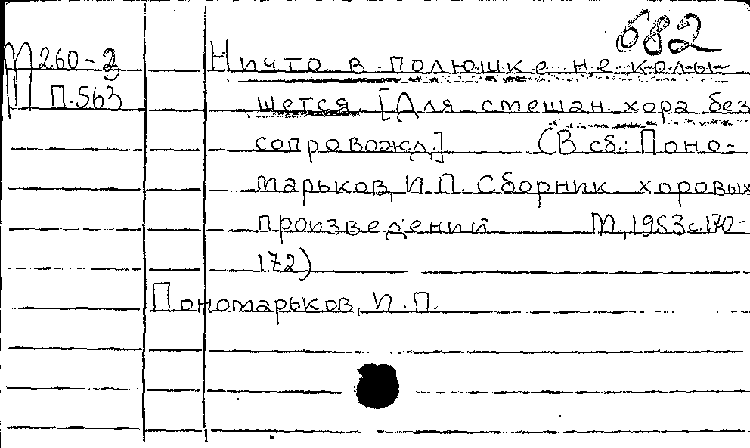 682
М 260-2
П.563
Ничто в полюшке не колы-
шется. [Для смешан хора без
сопровожд.] (В сб.: Поно-
марьков, И.П. Сборник хоровых
произведений М, 1953 с.170-
172)
Пономарьков, И.П.